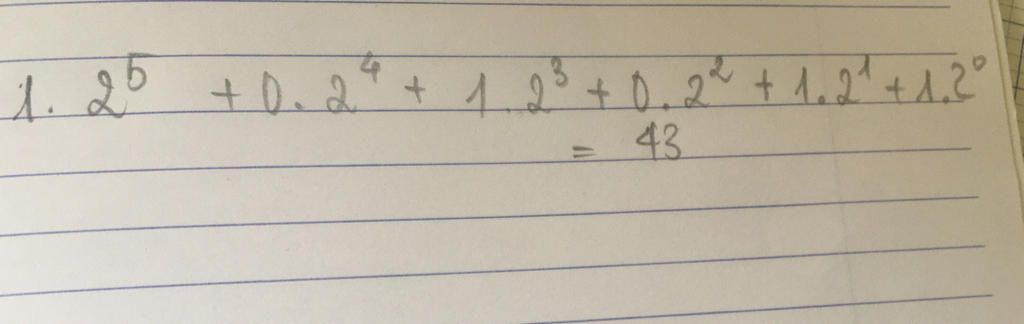 1. 2⁵ + 0. 2⁴ + 1. 2³ + 0. 2² + 1. 2¹ + 1. 2⁰
= 43